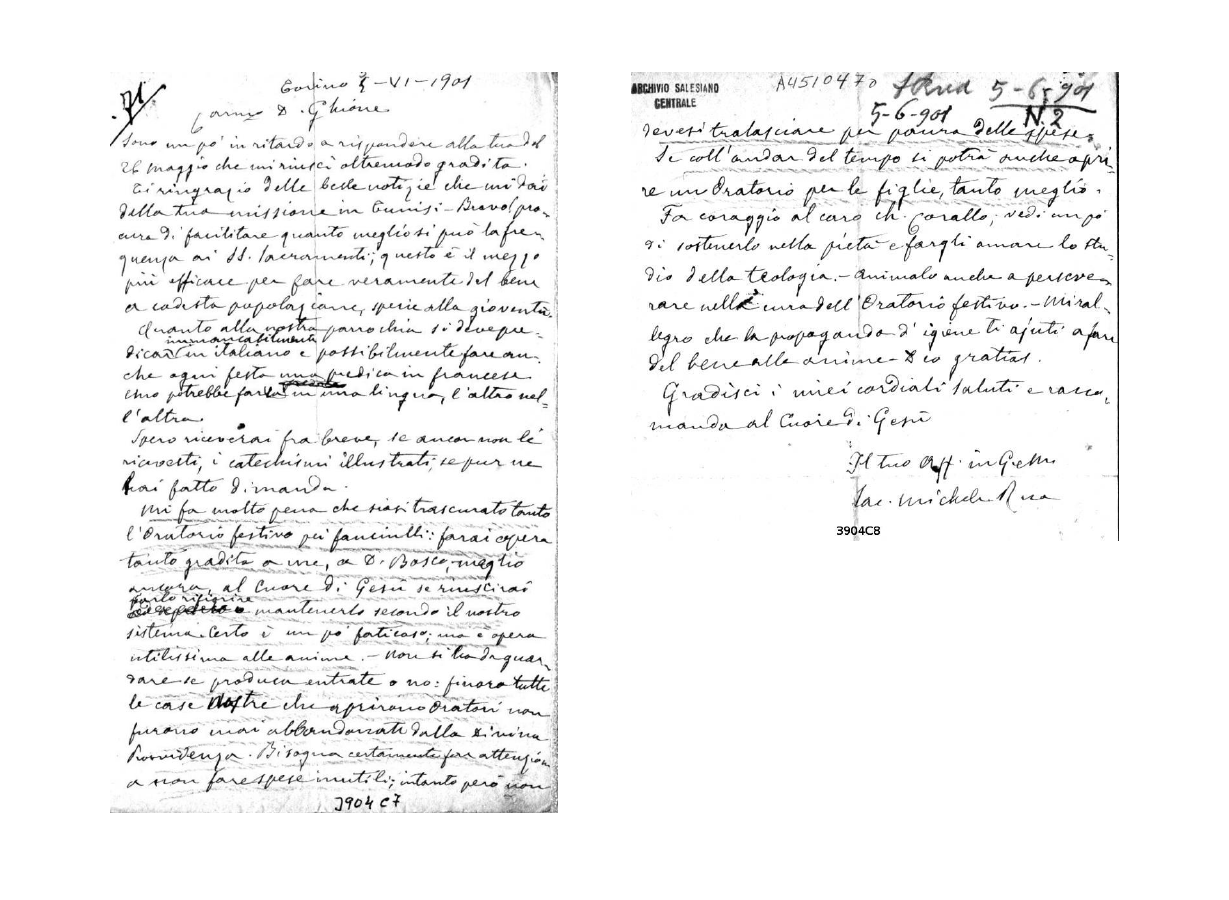 71
Torino 5-VI-1901
Carmo D. Ghione
Sono un po' in ritardo a rispondere alla tua del
26 maggio che mi riuscì oltremodo gradita.
Ti ringrazio delle belle notizie che mi dai
della tua missione in Tunisi - Bravo! pro-
cura di facilitare quanto meglio si può la fre-
quenza ai SS. Sacramenti; questo è il mezzo
più efficace per fare veramente del bene
a codesta popolazione, specie alla gioventù.
Quanto alla nostra parrochia si deve pre-
immancabilmente
dicar in italiano e possibilmente fare an-
che ogni festa una predica in francese
uno potrebbe farla in una lingua, l'altro nel-
l'altra.
Spero riceverai fra breve, se ancor non li
ricevesti, i catechismi illustrati, se pur ne
hai fatto dimanda.
Mi fa molto pena che siasi trascurato tanto
l'Oratorio festivo pei fanciulli: farai opera
tanto gradita a me, a D. Bosco, meglio
ancora, al Cuore di Gesù se riuscirai
farlo rifiorire
mantenerlo secondo il nostro
sistema. Certo è un po' faticoso; ma è opera
utilissima alle anime. - Non si ha da guar-
dare se produca entrate o no: finora tutte
le case nostre che aprirono Oratori non
furono mai abbandonati dalla Divina
Provvidenza. Bisogna certamente far attenzion
a non fare spese inutili; intanto però non
3904C7
ARCHIVIO SALESIANO
CENTRALE
A4510470
5-6-901
5-6-901
N. 2
devesi tralasciare per paura delle spese.
Se coll'andar del tempo si potrà anche apri-
re un Oratorio per le figlie, tanto meglio.
Fa coraggio al caro ch. Corallo; vedi un po'
di sostenerlo nella pietà e fargli amare lo stu-
dio della teologia. - Animalo anche a perseve-
rare nella cura dell'Oratorio festivo. - Mi ral-
legro che la propaganda d'igiene ti ajuti a fare
del bene alle anime - Deo gratias.
Gradisci i miei cordiali saluti e racco-
manda al Cuore di Gesù
Il tuo aff. in G.
Sac. Michele Rua
3904C8